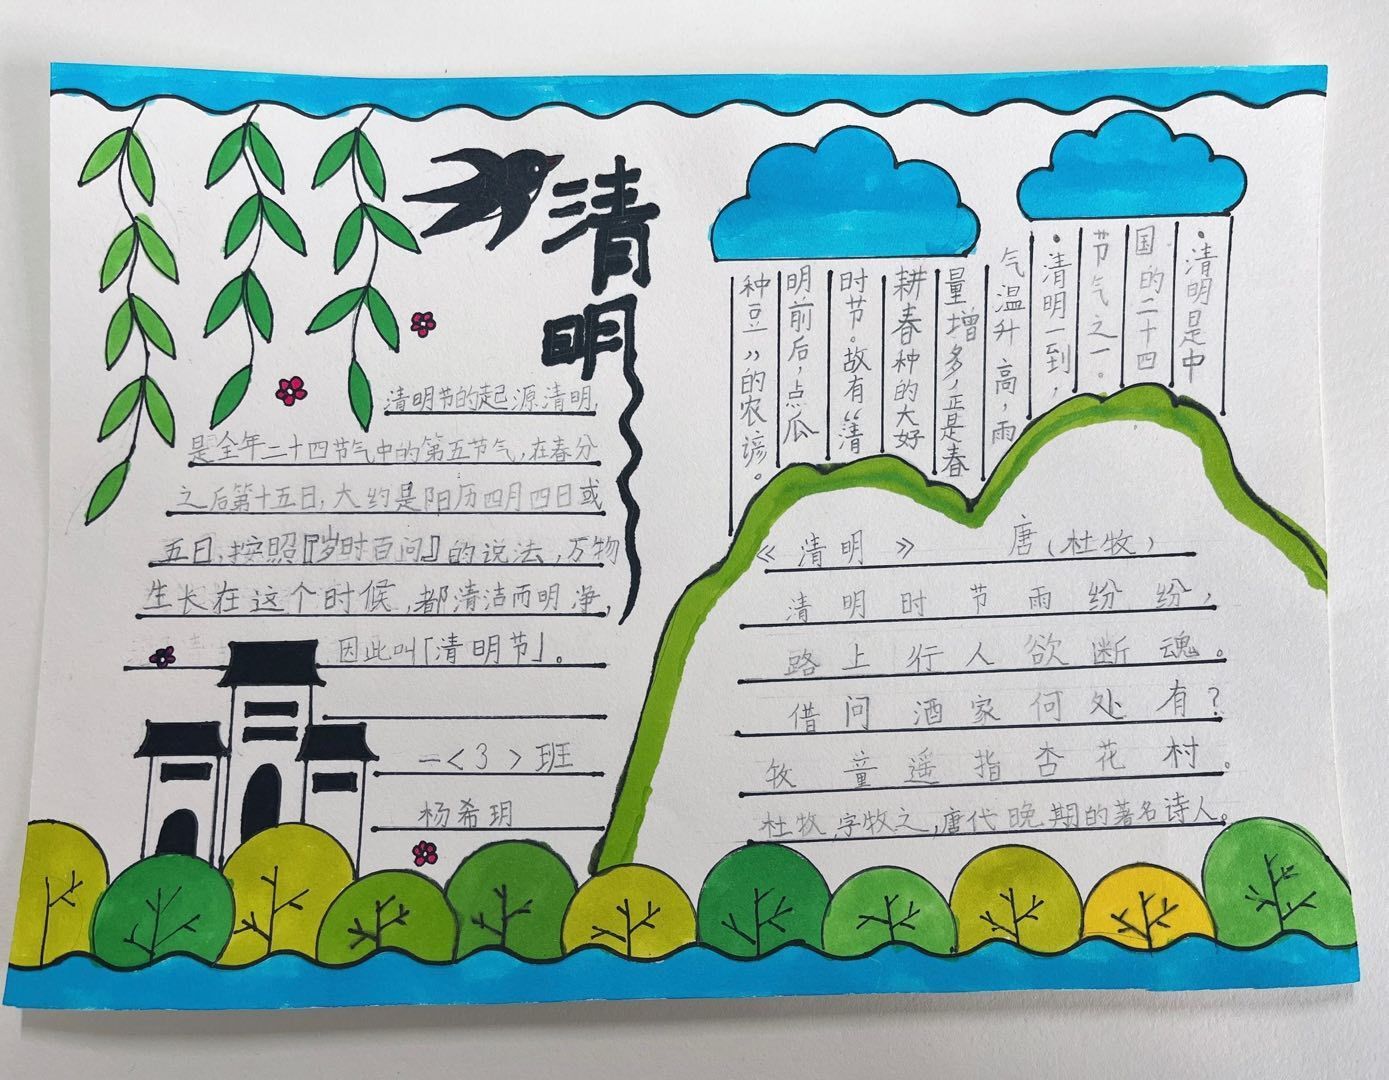 清明
清明节的起源清明，
是全年二十四节气中的第五节气，在春分
之后第十五日，大约是阳历四月四日或
五日，按照『岁时百问』的说法，万物
生长在这个时候，都清洁而明净，
因此叫「清明节」。
一<3>班
杨希玥
·清明是中
国的二十四
节气之一。
·清明一到，
气温升高，雨
量增多，正是春
耕春种的大好
时节。故有“清
明前后，点瓜
种豆”的农谚。
《清明》 唐（杜牧）
清明时节雨纷纷，
路上行人欲断魂。
借问酒家何处有？
牧童遥指杏花村。
杜牧字牧之，唐代晚期的著名诗人。